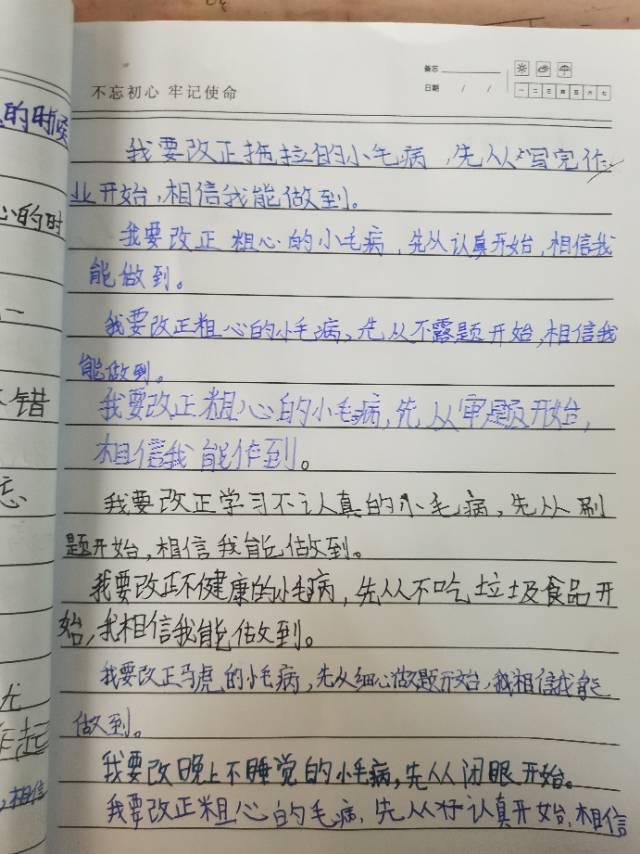 的时候
心的时
一
错
忘
起
相信
备忘
日期 / /
一 二 三 四 五 六 七
不忘初心 牢记使命
我要改正拖拉的小毛病,先从写完作
业开始,相信我能做到。
我要改正粗心的小毛病,先从认真开始,相信我
能做到。
我要改正粗心的小毛病,先从不露题开始,相信我
能做到。
我要改正粗心的小毛病,先从审题开始,
相信我能作到。
我要改正学习不认真的小毛病,先从刷
题开始,相信我能做到。
我要改正不健康的小毛病,先从不吃垃圾食品开
始,我相信我能做到。
我要改正马虎的小毛病,先从细心做题开始,我相信我能
做到。
我要改晚上不睡觉的小毛病,先从闭眼开始。
我要改正粗心的毛病,先从认真开始,相信